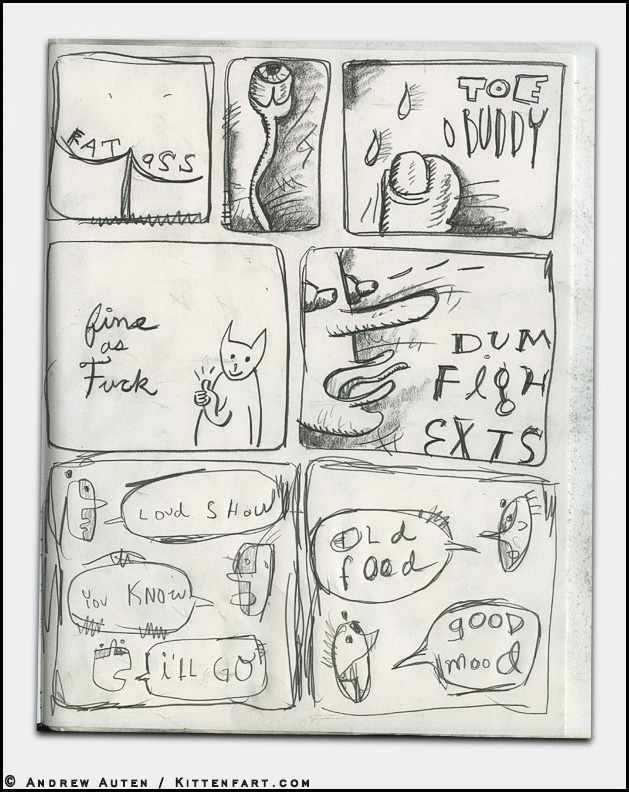 FAT ASS
TOE
BUDDY
fine
as
Fuck
DUM
FIGH
EXTS
LOUD SHOW
YOU KNOW
I'LL GO
OLd
food
gOOD
mood
© ANDREW AUTEN / KITTENFART.COM